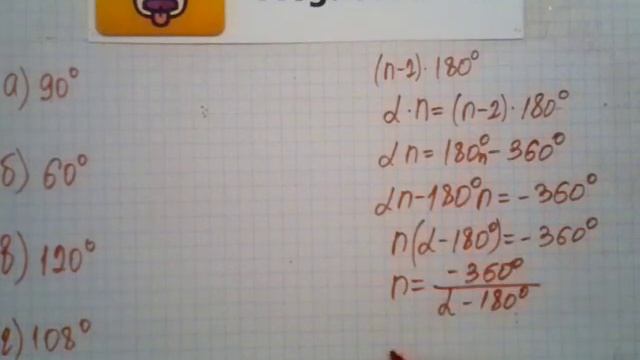 а) 90°
б) 60°
в) 120°
г) 108°
(n-2)·180°
α·n=(n-2)·180°
αn=180°n-360°
αn-180°n=-360°
n(α-180°)=-360°
n=-360°/α-180°